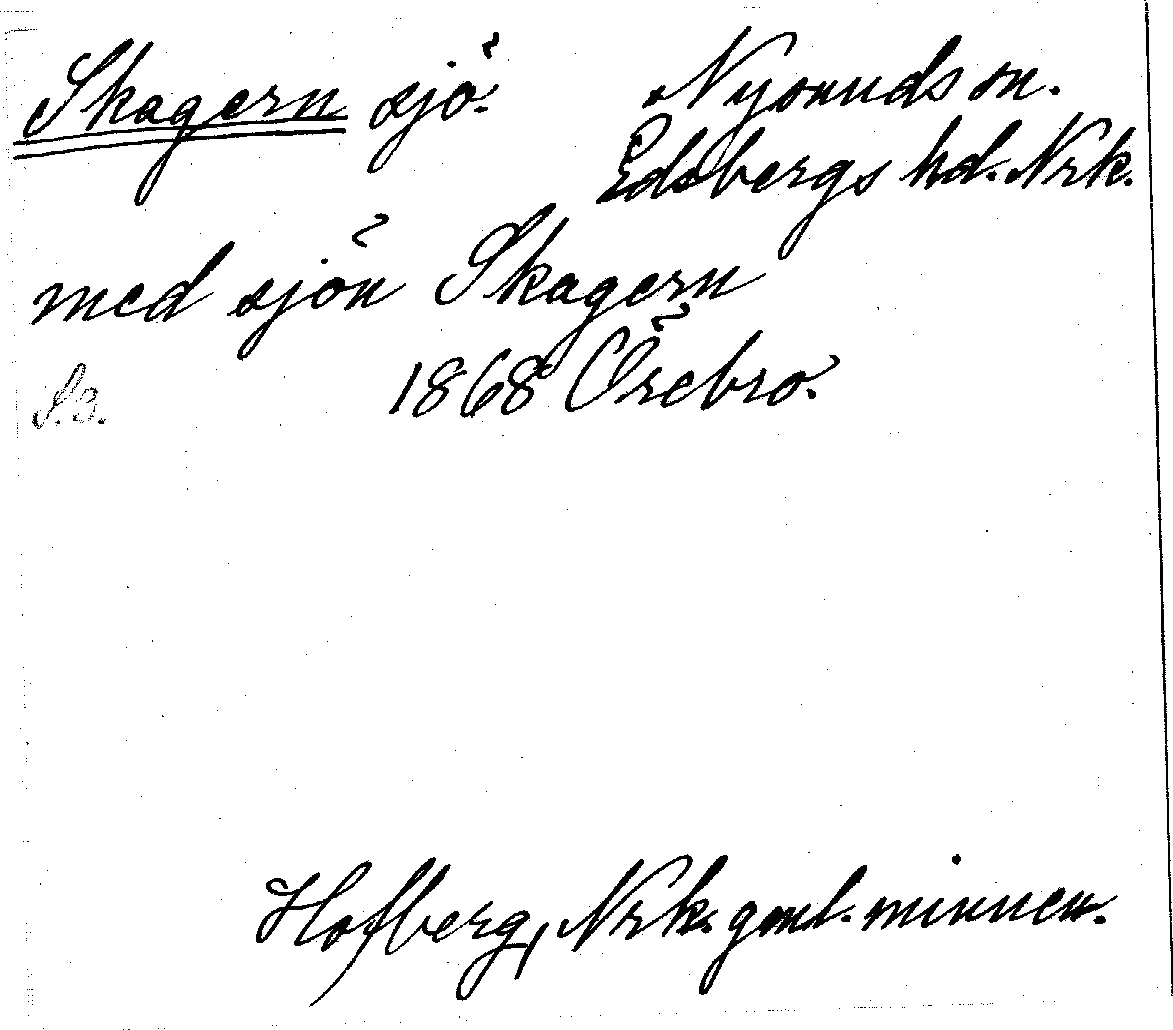 Skagern sjö. Nysunds sn.
Edsbergs hd. Nrk.
med sjön Skagern
1868 Örebro.
Hofberg, Nrk. gml. minnen.